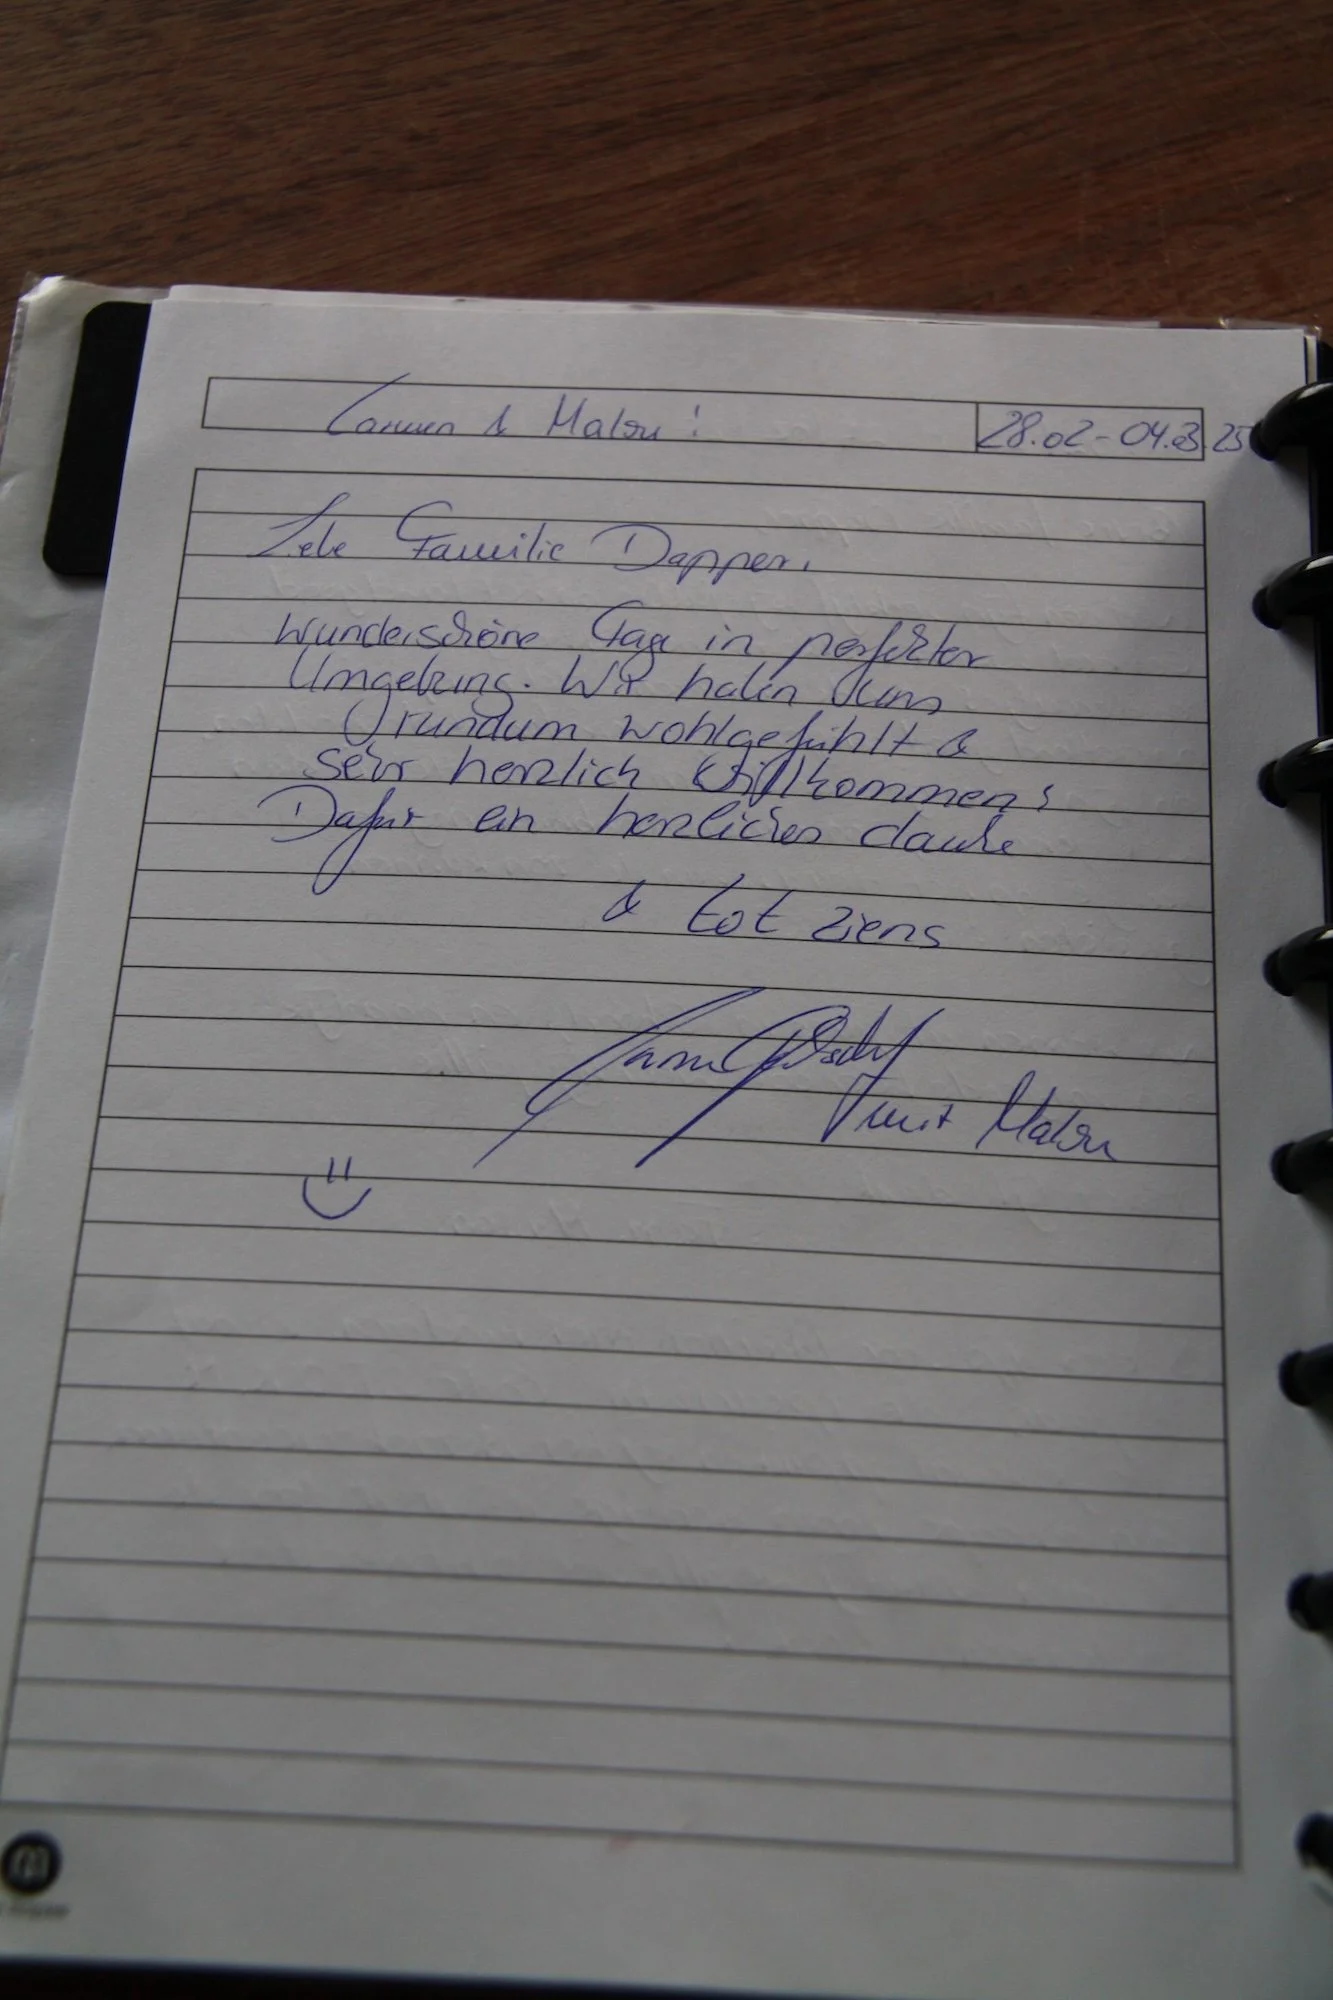 Carmen & Malou!
28.02-04.03.25
Liebe Familie Dapper,
wunderschöne Tage in perfekter
Umgebung. Wir haben uns
rundum wohlgefühlt &
sehr herzlich Willkommen!
Dafür ein herzliches danke
& tot ziens
mit Malou